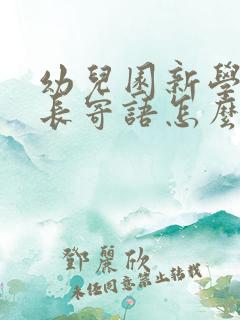 幼兒園新學
長寄語怎麼
鄧麗欣
未經同意禁止轉載